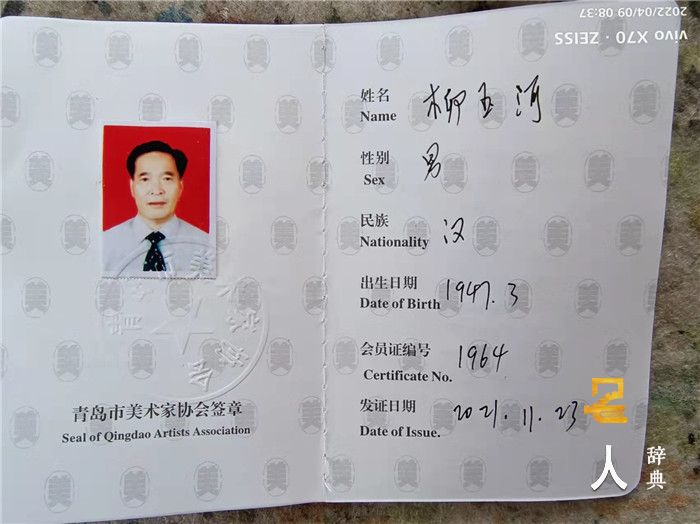 2022/04/09 08:37
vivo X70 · ZEISS
青岛市美术家协会签章
Seal of Qingdao Artists Association
姓名 柳玉河
Name
性别 男
Sex
民族 汉
Nationality
出生日期 1947.3
Date of Birth
会员证编号 1964
Certificate No.
发证日期 2021.11.23
Date of Issue.
名
人
辞典
美